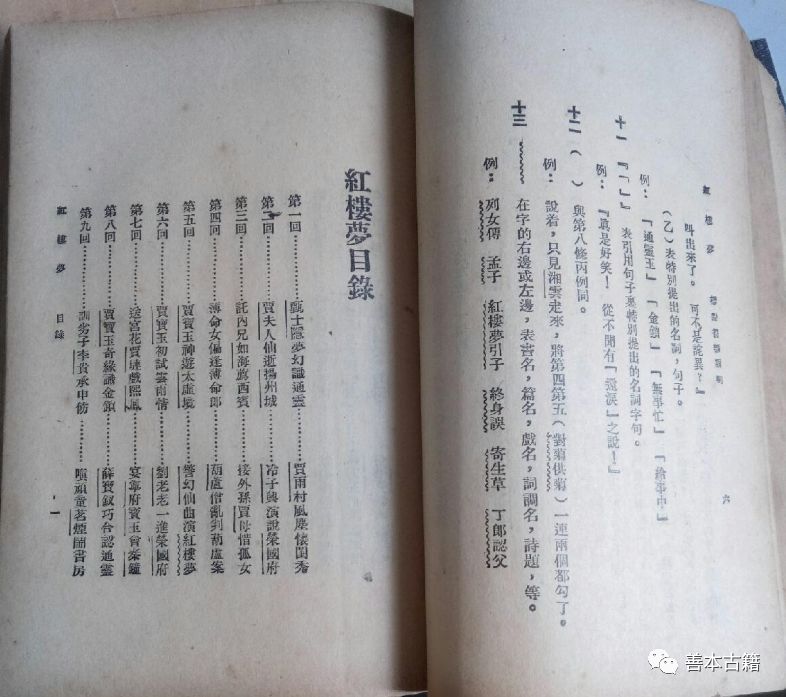 紅樓夢　標點符號說明　六
叫出來了。　可不是詫異？』
（乙）表特別提出的名詞，句子。
例：　「通靈玉」　「金鎖」　「無事忙」　「給事中」
十一　『「」』　表引用句子裏特別提出的名詞字句。
例：　『真是好笑！　從不聞有「還淚」之說！』
十二（　）　與第八條丙例同。
例：　說着，只見湘雲走來，將第四第五（對菊供菊）一連兩個都勾了。
十三　在字的右邊或左邊，表書名，篇名，戲名，詞調名，詩題，等。
例：　列女傳　孟子　紅樓夢引子　終身誤　寄生草　丁郎認父
紅樓夢目錄
第一回………甄士隱夢幻識通靈………賈雨村風塵懷閨秀
第二回………賈夫人仙逝揚州城………冷子興演說榮國府
第三回………託內兄如海薦西賓………接外孫賈母惜孤女
第四回………薄命女偏逢薄命郎………葫蘆僧亂判葫蘆案
第五回………賈寶玉神遊太虛境………警幻仙曲演紅樓夢
第六回………賈寶玉初試雲雨情………劉老老一進榮國府
第七回………送宮花賈璉戲熙鳳………宴寧府寶玉會秦鐘
第八回………賈寶玉奇緣識金鎖………薛寶釵巧合認通靈
第九回………訓劣子李貴承申飭………嗔頑童茗煙鬧書房
紅樓夢　目錄　一
善本古籍